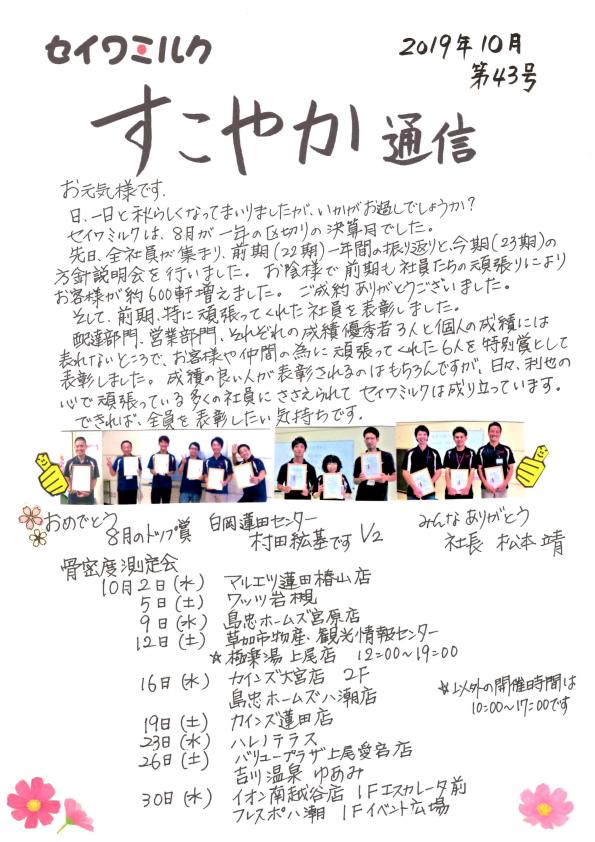 セイワミルク
2019年10月
第43号
すこやか通信
お元気様です.
日、一日と秋らしくなってまいりましたが、いかがお過しでしょうか?
セイワミルクは、8月が一年の区切りの決算月でした。
先日、全社員が集まり、前期(22期)一年間の振り返りと、今期(23期)の
方針説明会を行いました。お陰様で前期も社員たちの頑張りにより
お客様が約600軒増えました。ご成約ありがとうございました。
そして、前期、特に頑張ってくれた社員を表彰しました。
配達部門、営業部門、それぞれの成績優秀者3人と個人の成績には
表れないところで、お客様や仲間の為に頑張ってくれた6人を特別賞として
表彰しました。成績の良い人が表彰されるのはもちろんですが、日々、利他の
心で頑張っている多くの社員にささえられてセイワミルクは成り立っています。
できれば、全員を表彰したい気持ちです。
おめでとう
8月のトップ賞
白岡蓮田センター
村田紘基です 1/2
みんなありがとう
社長 松本靖
骨密度測定会
10月2日(水) マルエツ蓮田椿山店
5日(土) ワッツ岩槻
9日(水) 島忠ホームズ宮原店
12日(土) 草加市物産、観光情報センター
☆極楽湯上尾店 12:00〜19:00
16日(水) カインズ大宮店 2F
島忠ホームズ八潮店
☆以外の開催日時間は
10:00〜17:00です
19日(土) カインズ蓮田店
23日(水) ハレノテラス
26日(土) バリュープラザ上尾愛宕店
吉川温泉 ゆあみ
30日(水) イオン南越谷店 1Fエスカレータ前
フレスポ八潮 1Fイベント広場